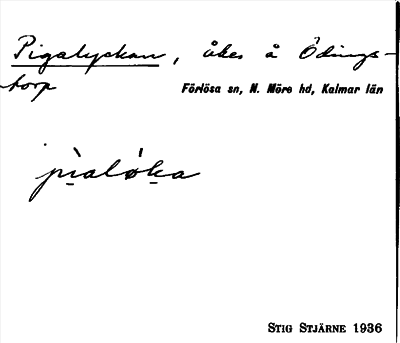 Pigalyckan, åker å Ödings-
torp Förlösa sn, N. Möre hd, Kalmar län
pìalø̀ka
STIG STJÄRNE 1936